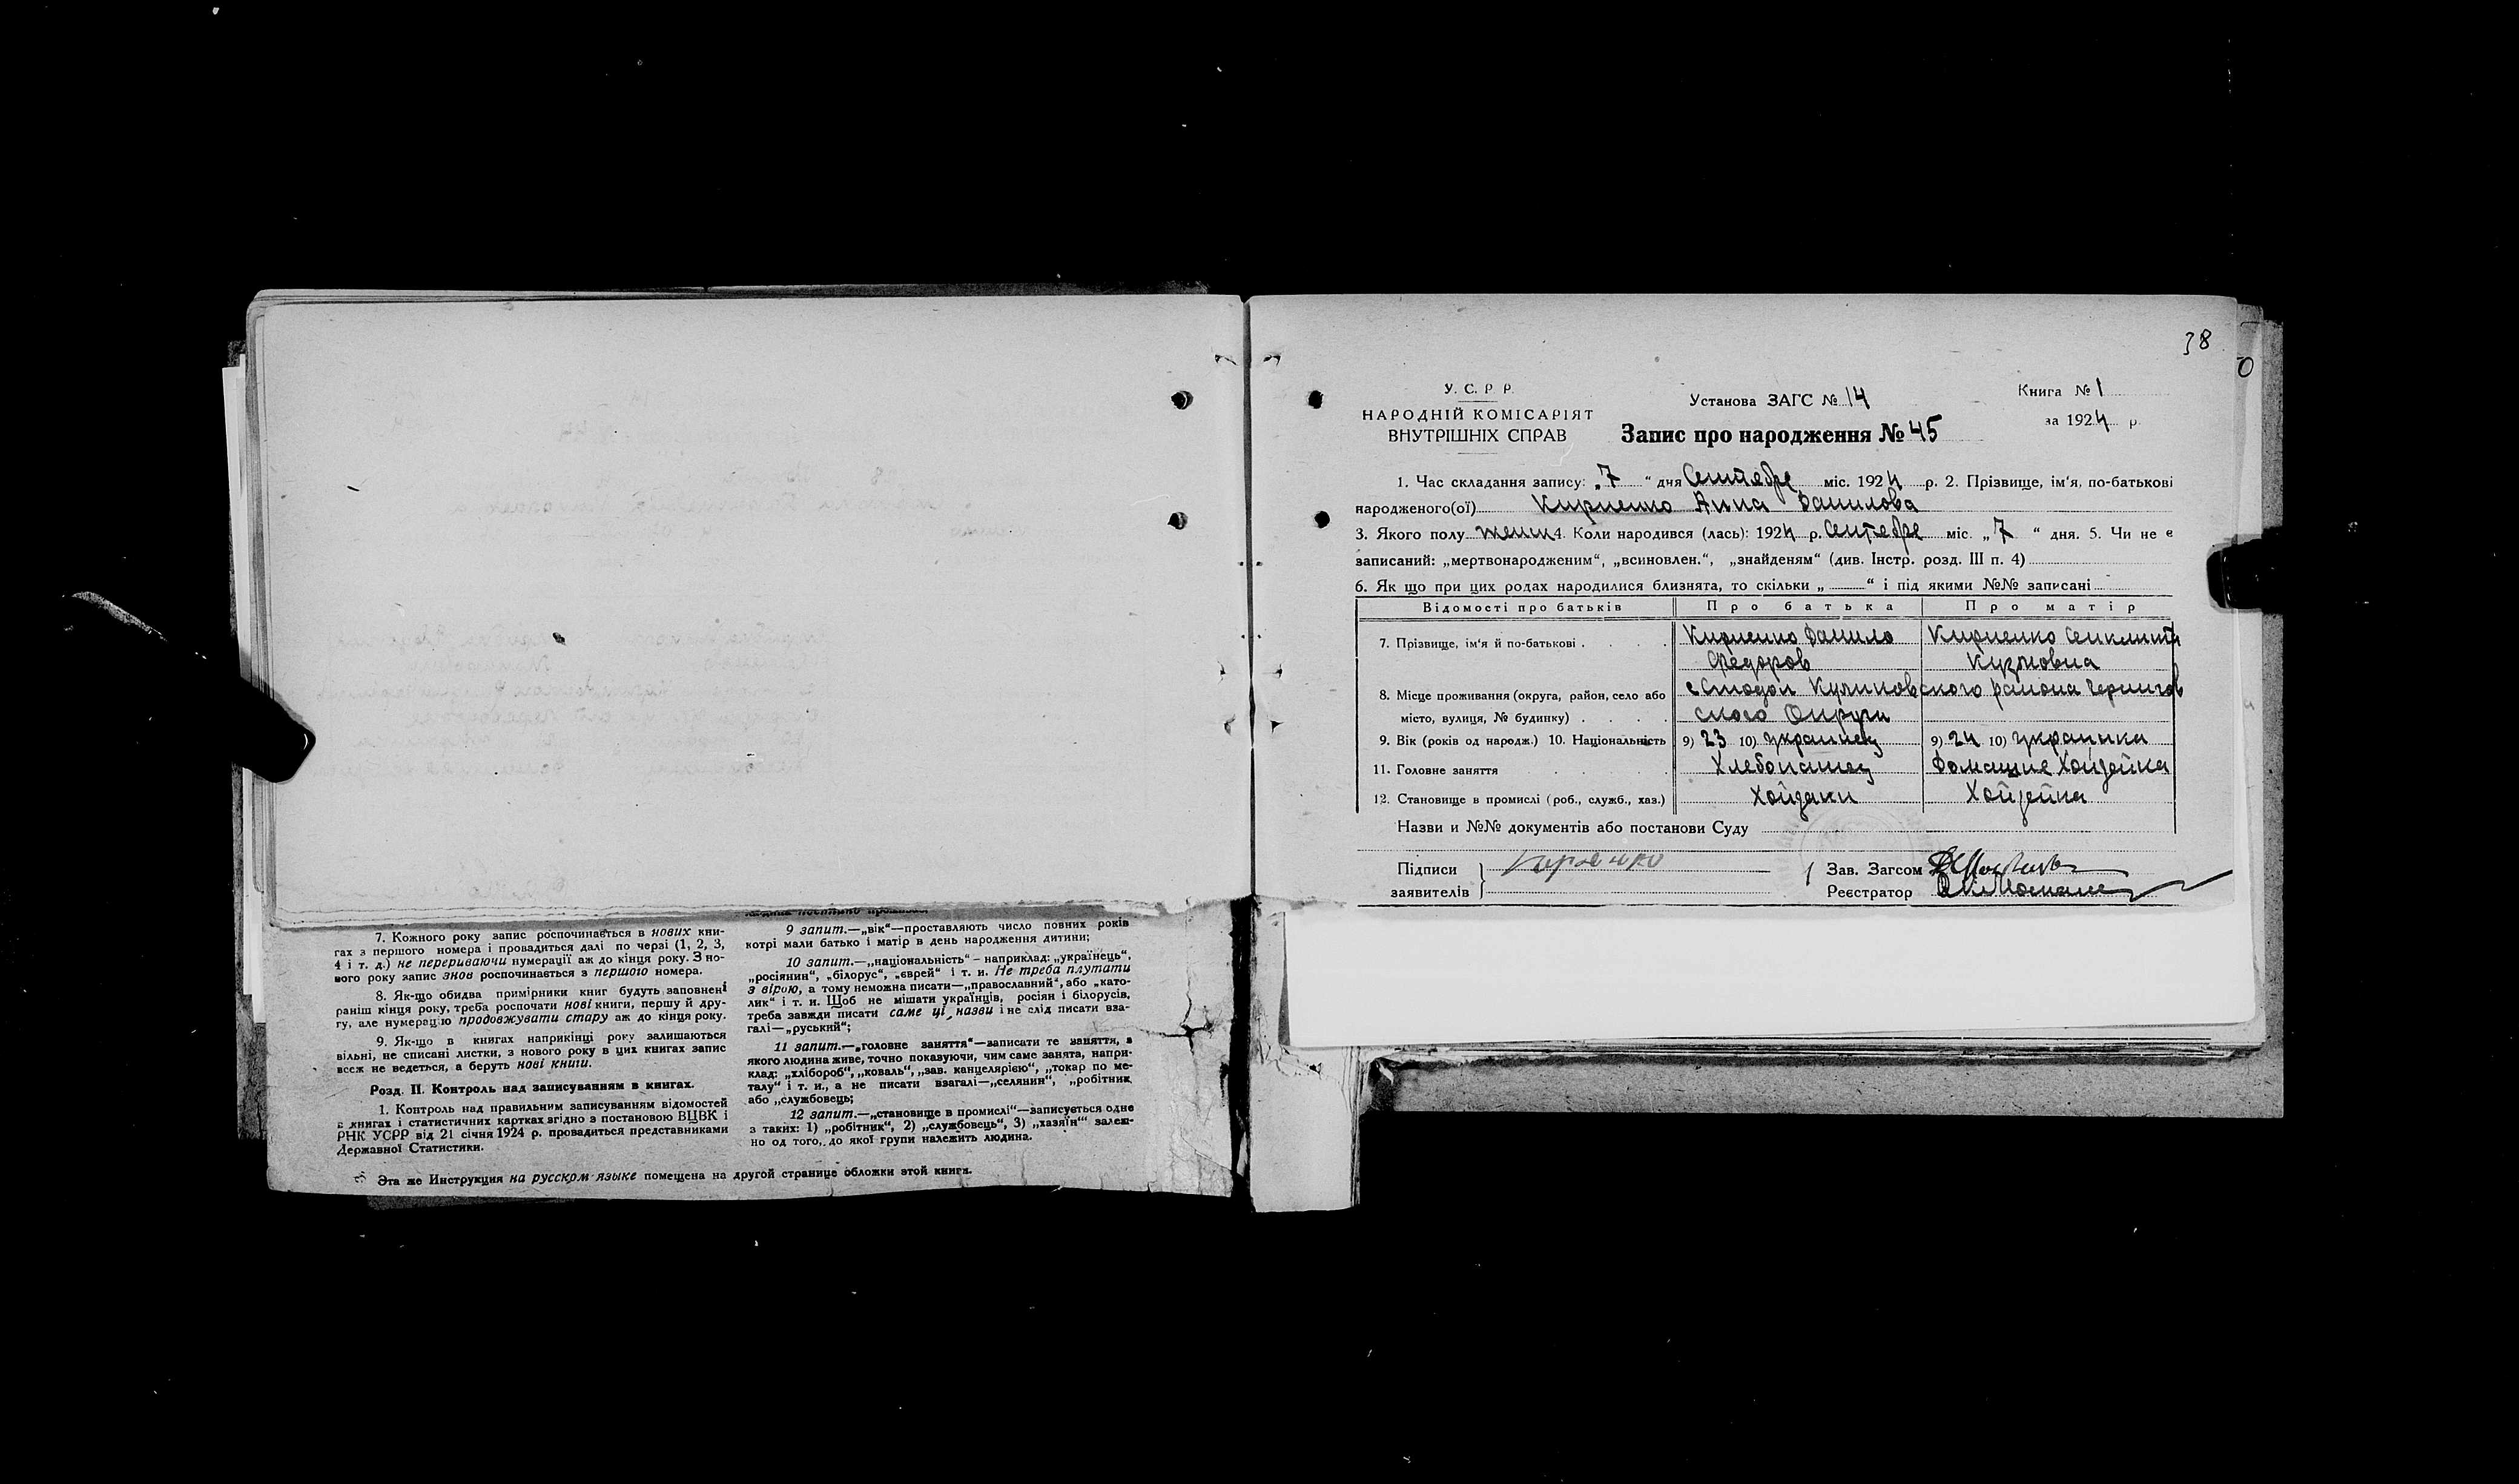 38
У. С. Р. Р.
НАРОДНІЙ КОМІСАРІЯТ
ВНУТРІШНІХ СПРАВ
Установа ЗАГС № 14
Запис про народження № 45
Книга № 1
за 1924 р.
1. Час складання запису: „7“ дня Сентебре міс. 1924 р. 2. Прізвище, ім'я, по-батькові
народженого(ої) Кириенко Анна Данилова
3. Якого полу женск 4. Коли народився (лась): 1924 р. Сентебре міс. „7“ дня. 5. Чи не є
записаний: „мертвонародженим“, „всиновлен.“, „знайденям“ (див. Інстр. розд. III п. 4)
6. Як що при цих родах народилися близнята, то скільки „ “ і під якими №№ записані
Відомості про батьків Про батька Про матір
7. Прізвище, ім'я й по-батькові . . . . Кириенко Данило Кириенко
Федоров Кузмовна
8. Місце проживання (округа, район, село або Куликовского района Чернигов
місто, вулиця, № будинку) . . . . ского Округи
9. Вік (років од народж.) 10. Національність 9) 23 10) украинец 9) 24 10) украинка
11. Головне заняття . . . . Хлебопашец Домашне Хозяйка
12. Становище в промислі (роб., служб., хаз.)
Назви и №№ документів або постанови Суду
Підписи Кириенко Зав. Загсом
заявителів Реєстратор
7. Кожного року запис розпочинається в нових кни-
гах з першого номера і провадиться далі по черзі (1, 2, 3,
4 і т. д.) не перериваючи нумерації аж до кінця року. З но-
вого року запис знов розпочинається з першого номера.
8. Як-що обидва примірники книг будуть заповнені
раніш кінця року, треба розпочати нові книги, першу й дру-
гу, але нумерацію продовжувати стару аж до кінця року.
9. Як-що в книгах наприкінці року залишаються
вільні, не списані листки, з нового року в цих книгах запис
всеж не ведеться, а беруть нові книги.
Розд. II. Контроль над записуванням в книгах.
1. Контроль над правильним записуванням відомостей
в книгах і статистичних картках згідно з постановою ВЦВК і
РНК УСРР від 21 січня 1924 р. провадиться представниками
Державної Статистики.
9 запит.—„вік“—проставляють число повних років
котрі мали батько і матір в день народження дитини;
10 запит.—„національність“ – наприклад: „українець“,
„росіянин“, „білорус“, „єврей“ і т. и. Не треба плутати
з вірою, а тому неможна писати—„православний“, або „като-
лик“ і т. и. Щоб не мішати українців, росіян і білорусів,
треба завжди писати саме ці назви і не слід писати вза-
галі—„руський“;
11 запит.—„головне заняття“—записати те заняття, з
якого людина живе, точно показуючи, чим саме занята, напри-
клад: „хлібороб“, „коваль“, „зав. канцелярією“, „токар по ме-
талу“ і т. и., а не писати взагалі—„селянин“, „робітник
або „службовець;
12 запит.—„становище в промислі“—записується одне
з таких: 1) „робітник“, 2) „службовець“, 3) „хазяїн“ залеж-
но од того, до якої групи належить людина.
Эта же Инструкция на русском языке помещена на другой странице обложки этой книги.